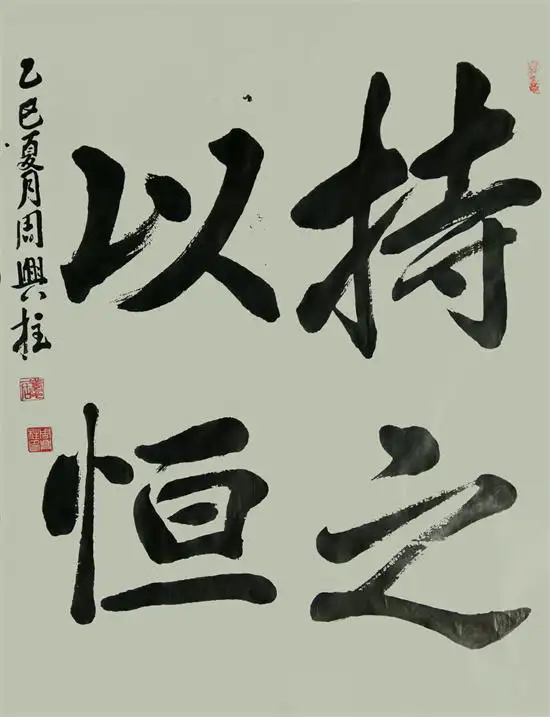 持之
以恒
乙巳夏月周興柱